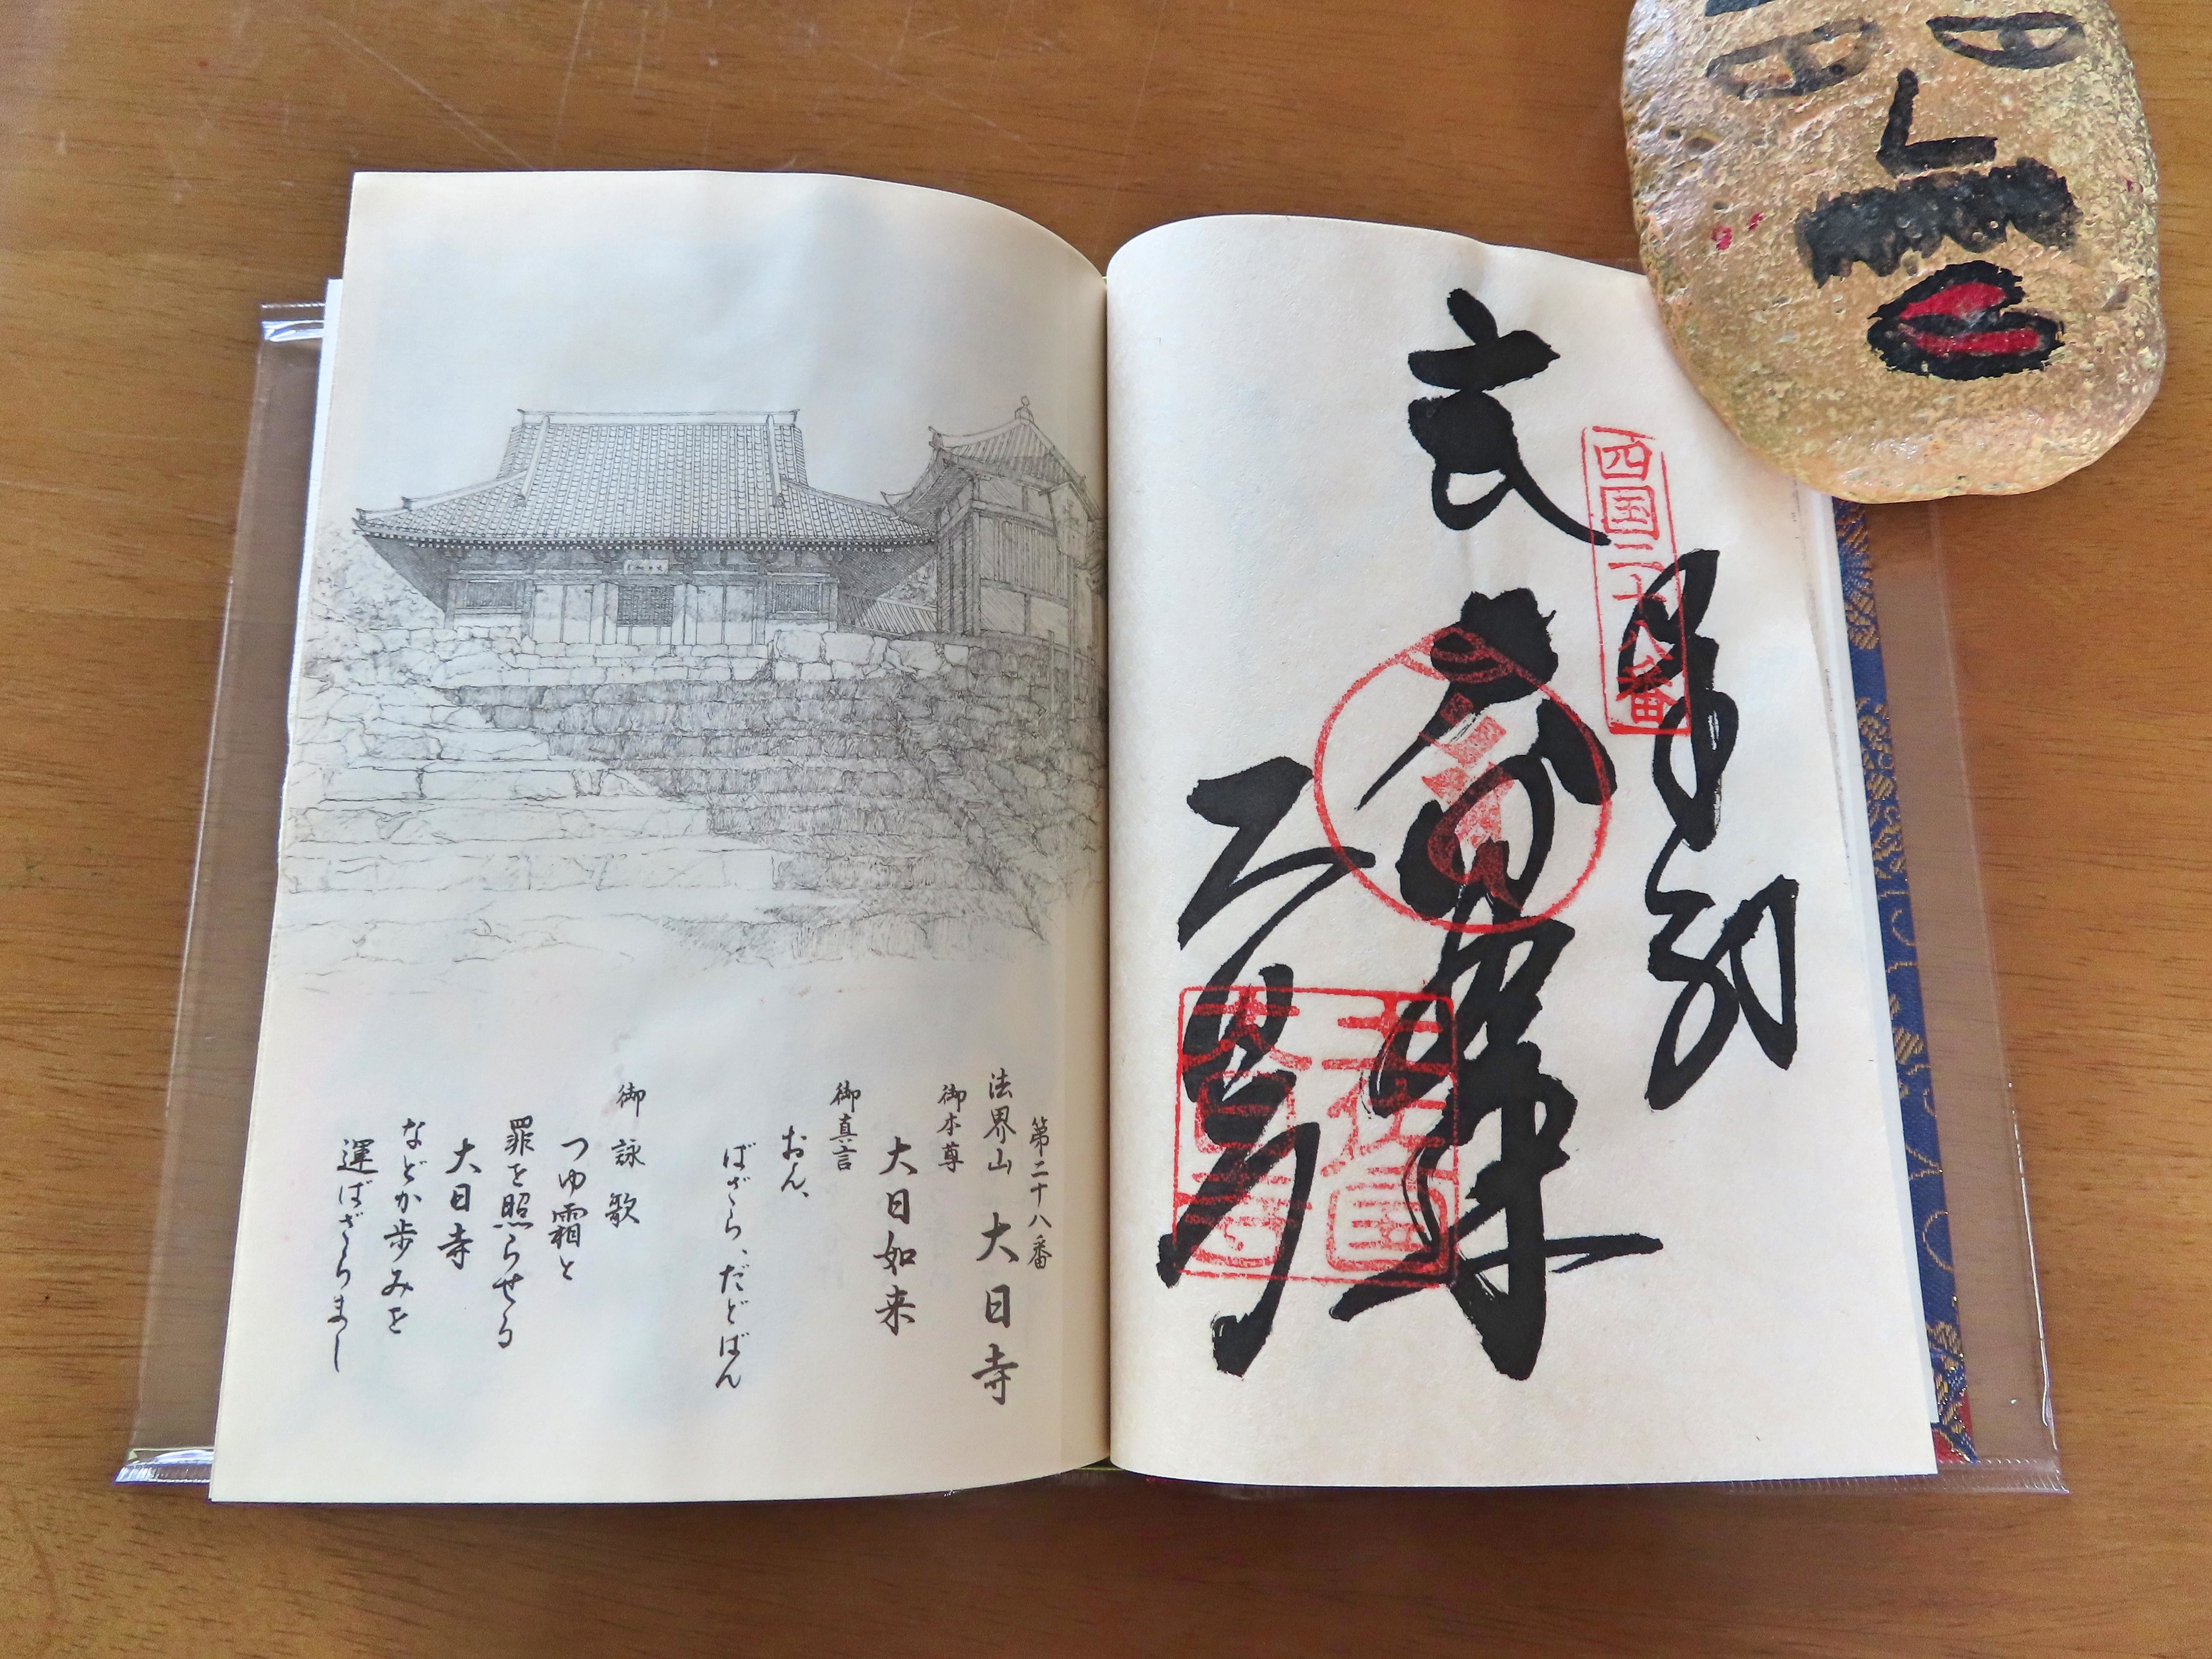 四国二十八番
奉納
大日如来
大日寺
第二十八番
法界山 大日寺
御本尊
大日如来
御真言
おん、
ばざら、だどばん
御詠歌
つゆ霜と
罪を照らせる
大日寺
などか歩みを
運ばざらまし